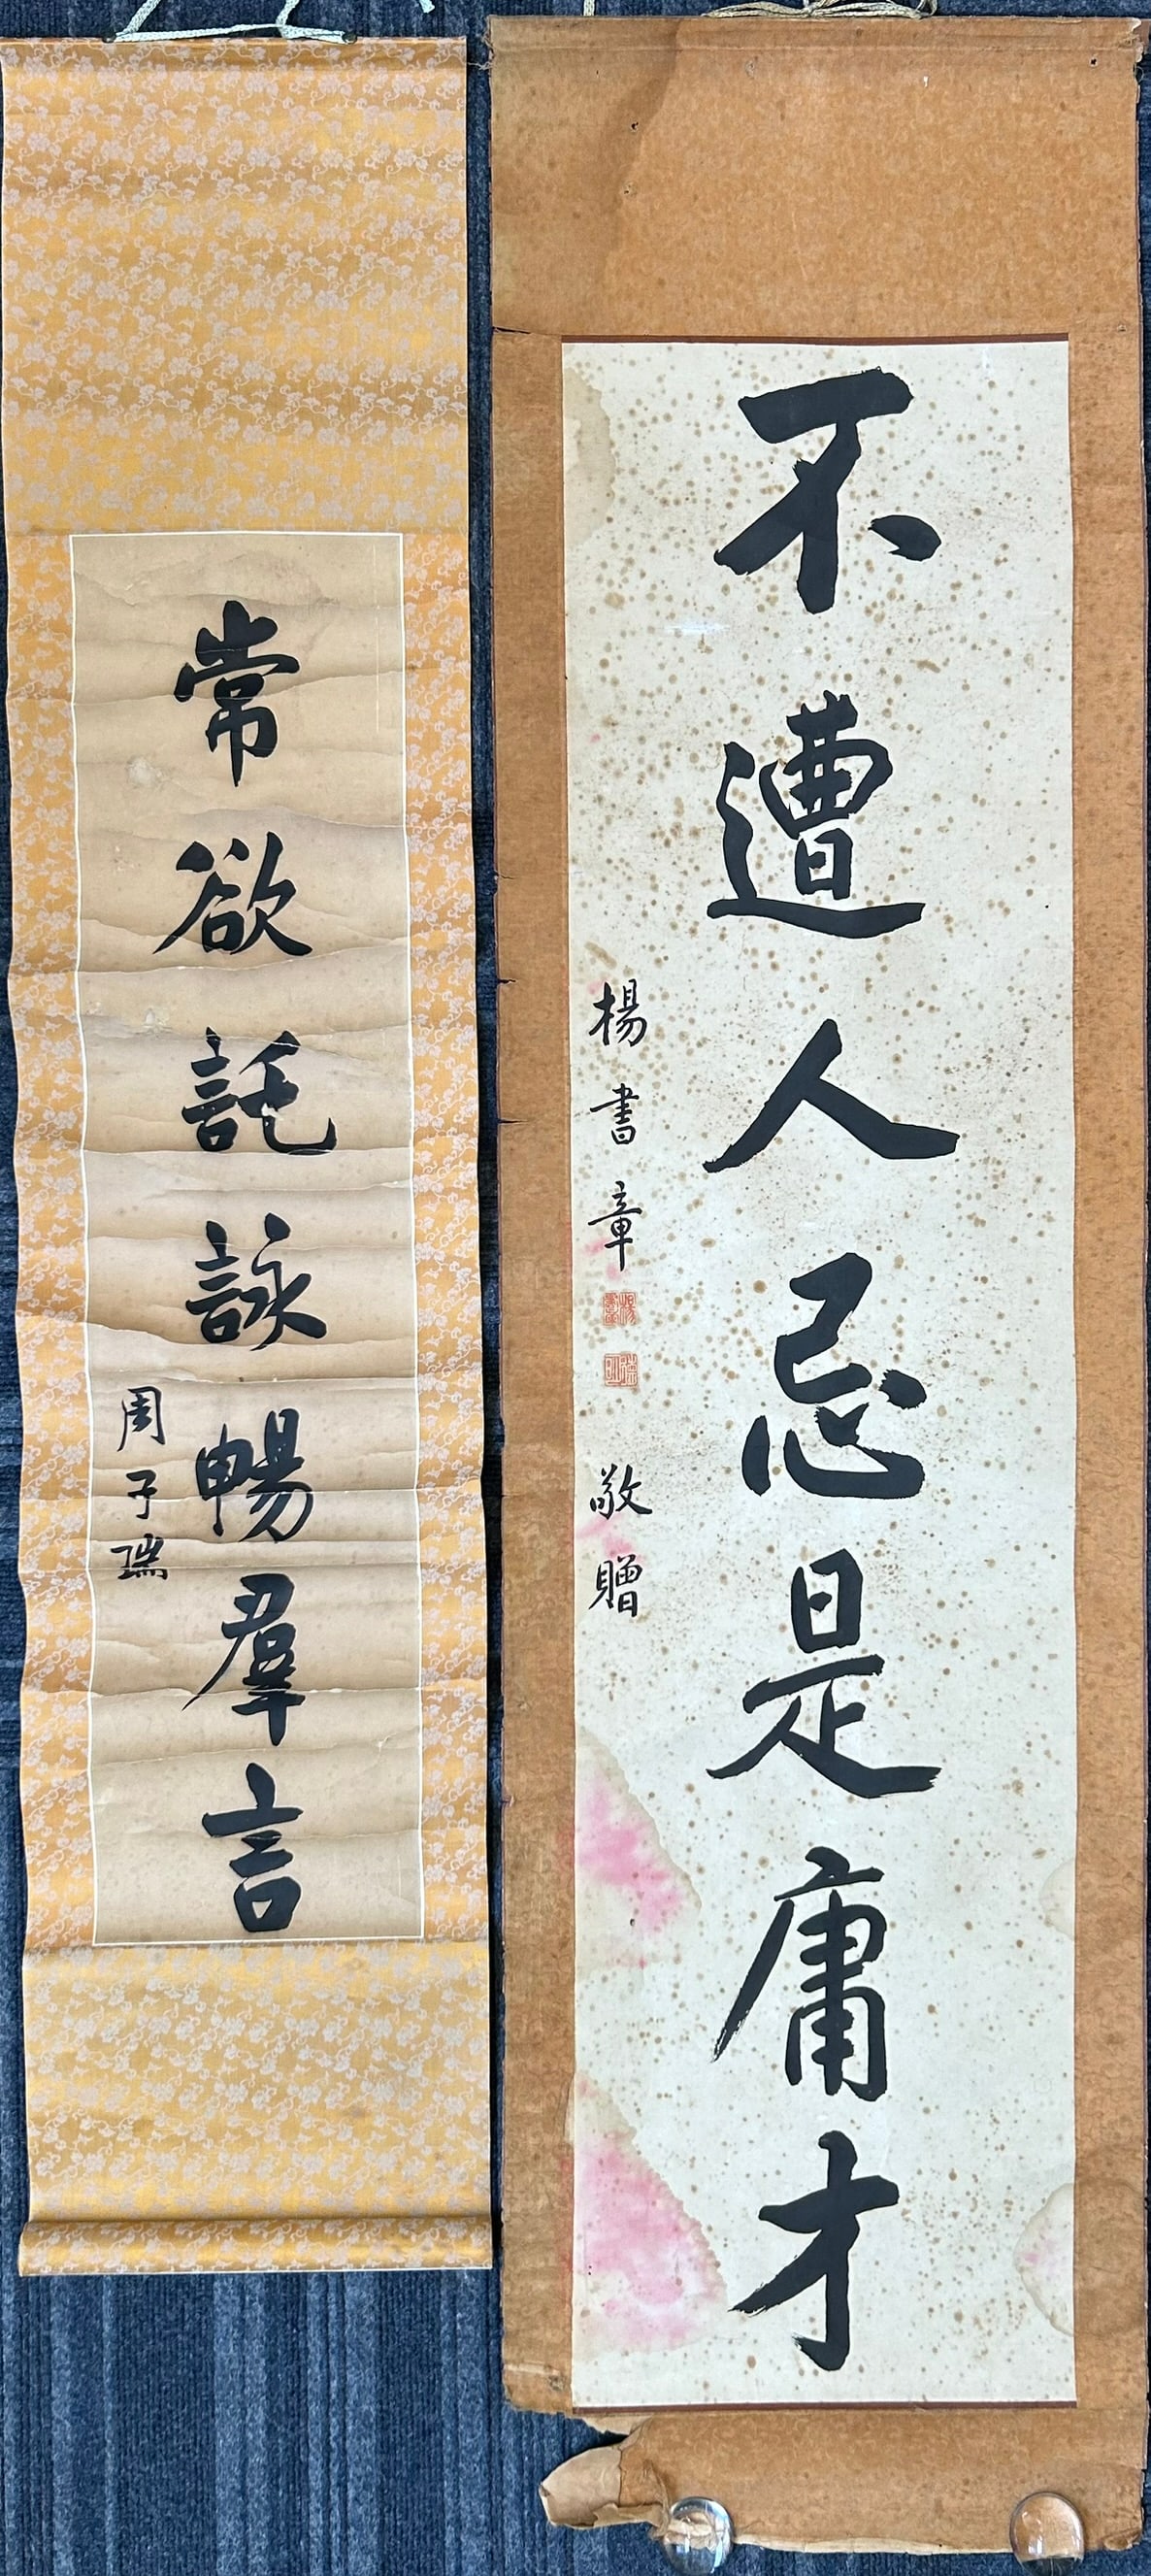 不遭人忌是庸才
楊書章
敬贈
常欲託詠暢羣言
周子瑞